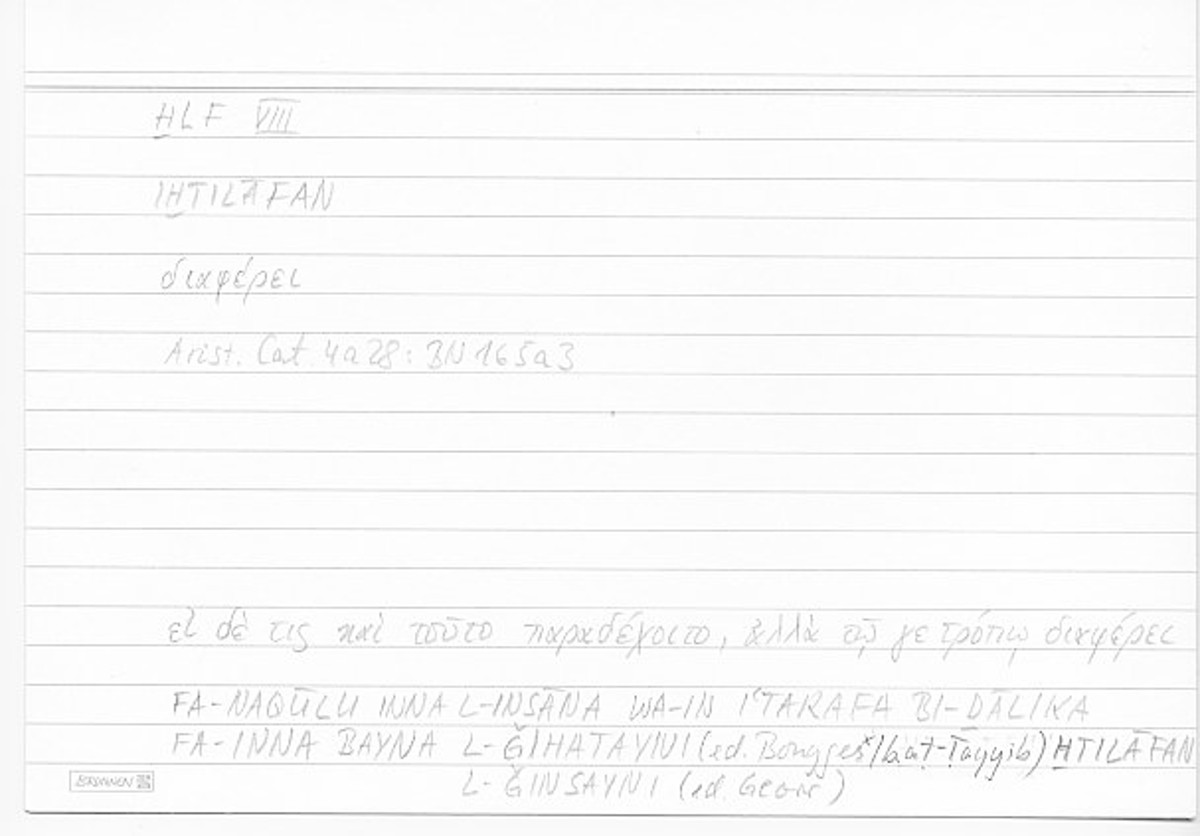 ḪLF VIII
IḪTILĀFAN
διαφέρει
Arist. Cat. 4a28: BN 165a3
εἰ δέ τις καὶ τοῦτο παραδέχοιτο, ἀλλὰ τῷ γε τρόπῳ διαφέρει
FA-NAQŪLU INNA L-INSĀNA WA-IN IʿTARAFA BI-ḎĀLIKA
FA-INNA BAYNA L-ǦIHATAYNI (ed. /b. aṭ-Ṭayyib) ḪTILĀFAN
L-ǦINSAYNI (ed. Georr)
BRUNNEN